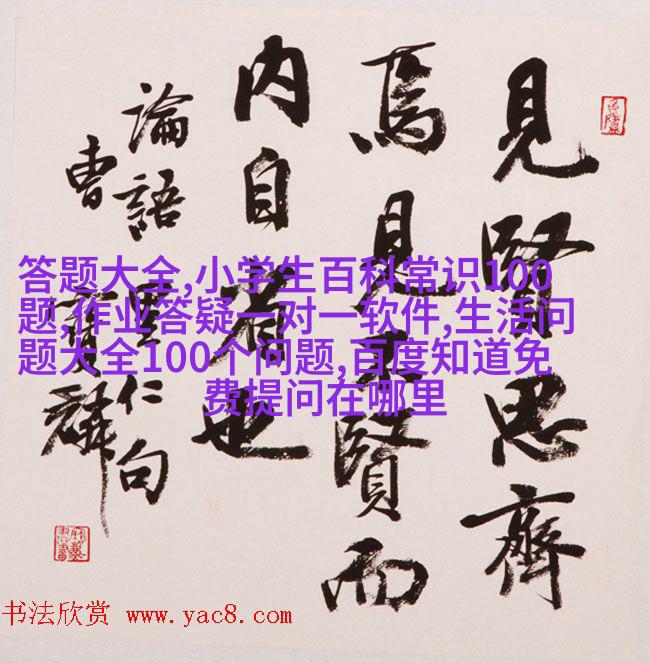 見賢思齊
焉見不賢而
内自省也
論語里仁句
曹寶麟
答题大全,小学生百科常识100
题,作业答疑一对一软件,生活问
题大全100个问题,百度知道免
费提问在哪里
书法欣赏 www.yac8.com